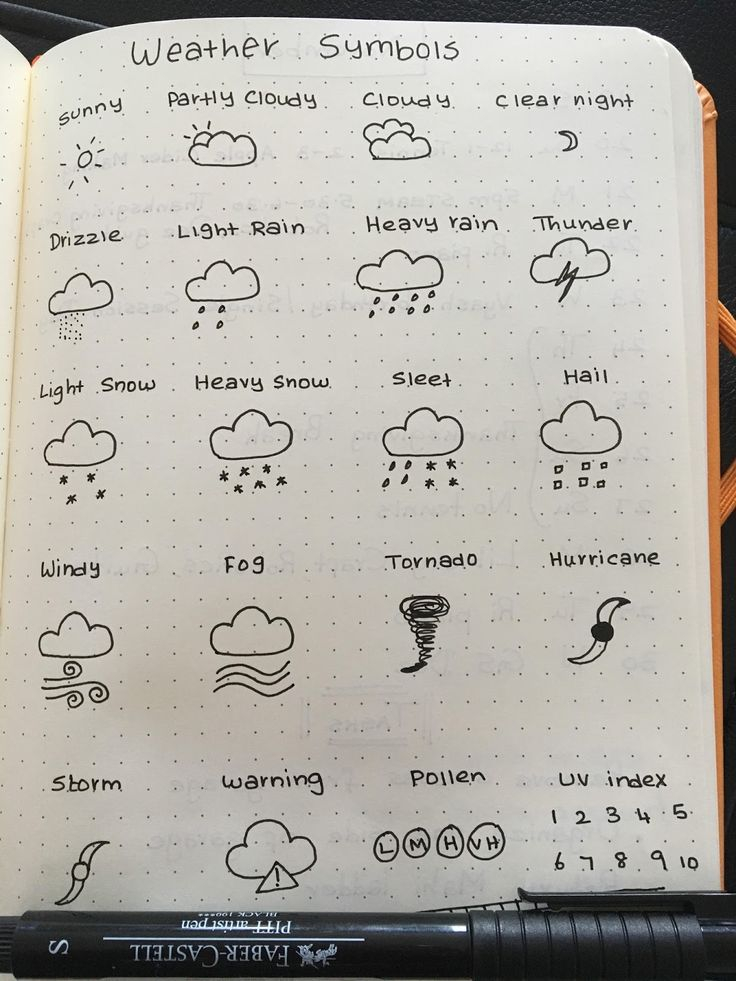 Weather Symbols
Sunny Partly Cloudy Cloudy Clear night
Drizzle Light Rain Heavy rain Thunder
Light Snow Heavy Snow Sleet Hail
Windy Fog Tornado Hurricane
Storm warning Pollen UV index
1 2 3 4 5
L M H VH
6 7 8 9 10
!
PITT artist pen
BLACK 199
FABER-CASTELL
S